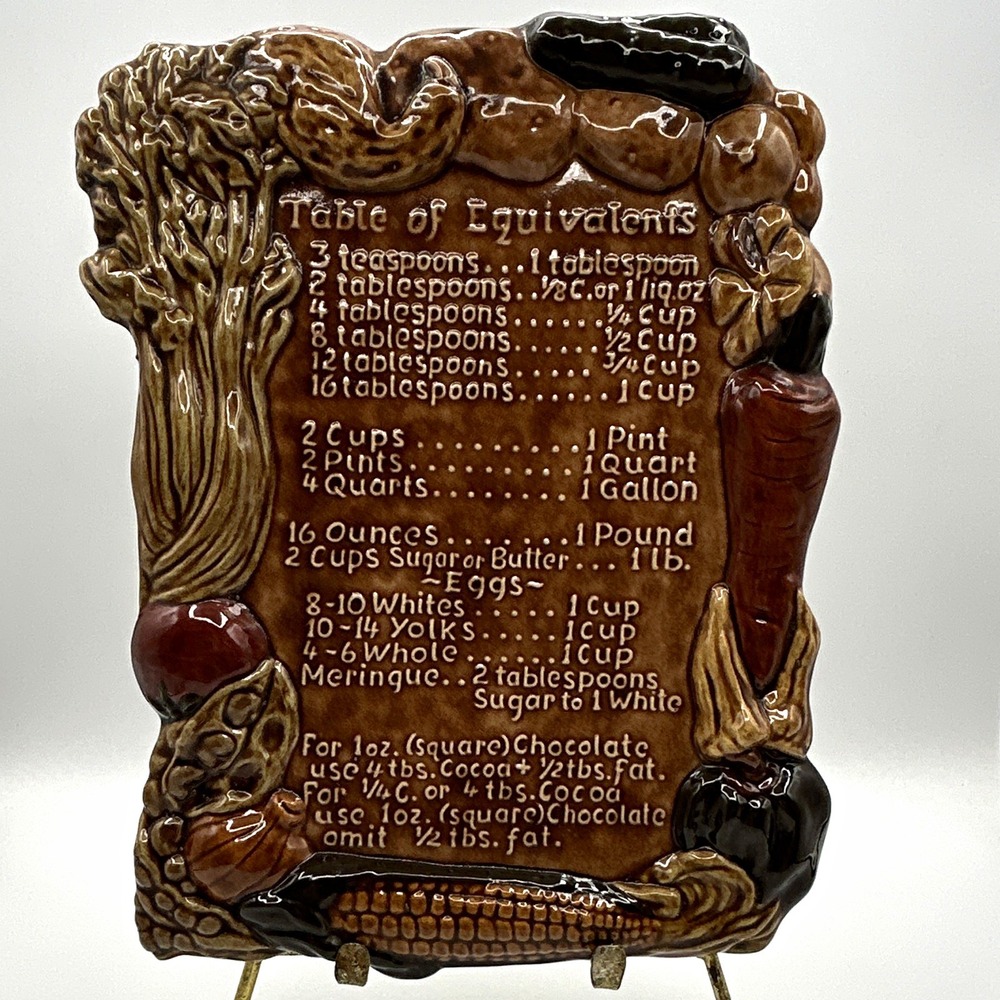 Table of Equivalents
3 teaspoons...1 tablespoon
2 tablespoons..⅛C.or 1 liq.oz
4 tablespoons......¼ Cup
8 tablespoons......½ Cup
12 tablespoons..... ¾ Cup
16 tablespoons......1 Cup
2 Cups..........1 Pint
2 Pints..........1 Quart
4 Quarts.........1 Gallon
16 Ounces........1 Pound
2 Cups Sugar or Butter... 1 lb.
~Eggs~
8-10 Whites.....1 Cup
10-14 Yolks.....1 Cup
4-6 Whole......1 Cup
Meringue..2 tablespoons
Sugar to 1 White
For 1oz. (square) Chocolate
use 4 tbs. Cocoa + ½ tbs. fat.
For ¼ C. or 4 tbs. Cocoa
use 1oz. (square) Chocolate
omit ½ tbs. fat.